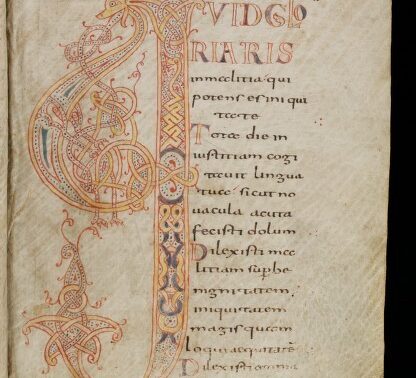 QVID GLO
RIARIS
inmalitia qui
potens es iniqui
tate
Tota die in
iustitiam cogi
tauit lingua
tua sicut no
uacula acuta
fecisti dolum
Dilexisti ma
litiam sup be
nignitatem
iniquitatem
magis quam
loqui aequitatē
Dilexisti omnia